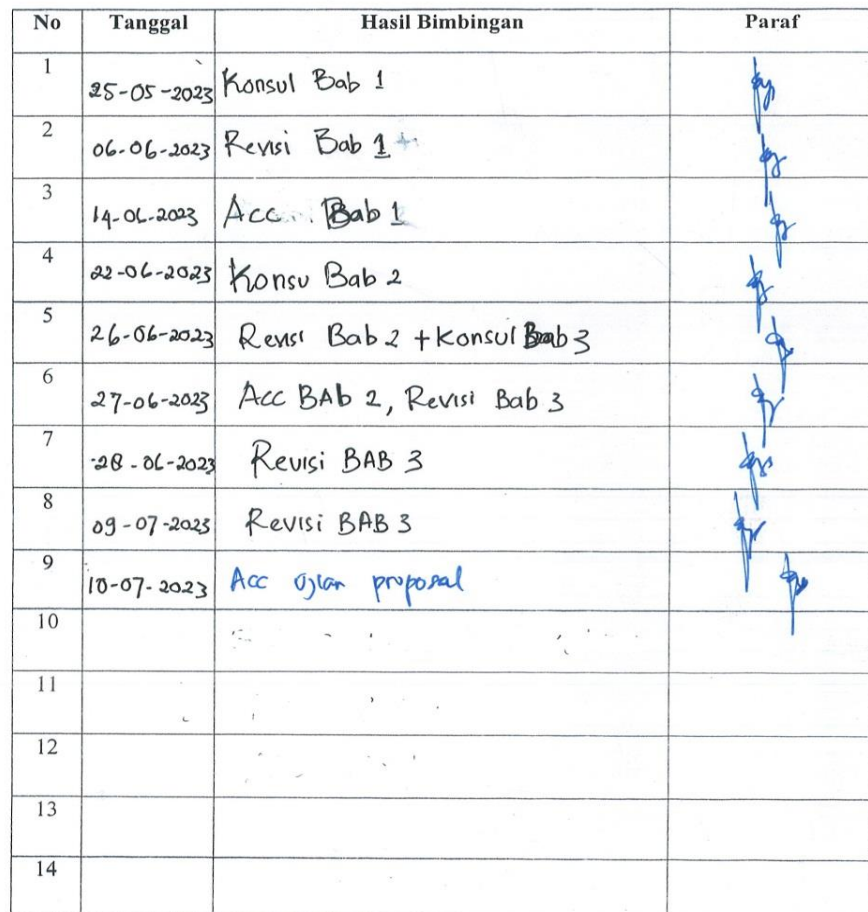 No Tanggal Hasil Bimbingan Paraf
1 25-05-2023 Konsul Bab 1
2 06-06-2023 Revisi Bab 1
3 14-06-2023 Acc Bab 1
4 22-06-2023 Konsu Bab 2
5 26-06-2023 Revisi Bab 2 + Konsul Bab 3
6 27-06-2023 Acc BAb 2, Revisi Bab 3
7 28-06-2023 Revisi BAB 3
8 09-07-2023 Revisi BAB 3
9 10-07-2023 Acc Ujian proposal
10
11
12
13
14